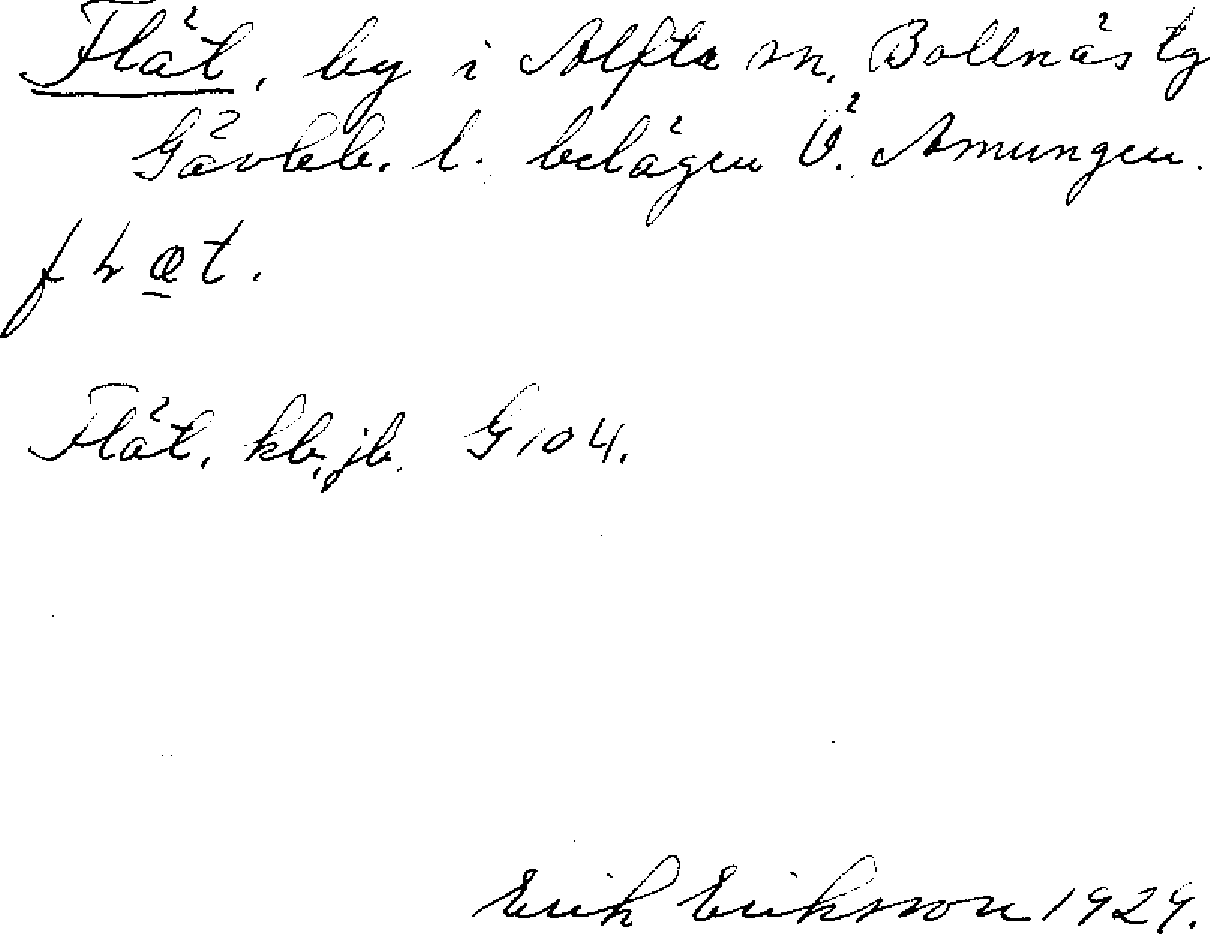 Flät, by i Alfta sn. Bollnäs tg
Gävleb. l. belägen Ö. Amungen.
flæt.
Flät, kb, jb. G 104.
Erik Eriksson 1929.